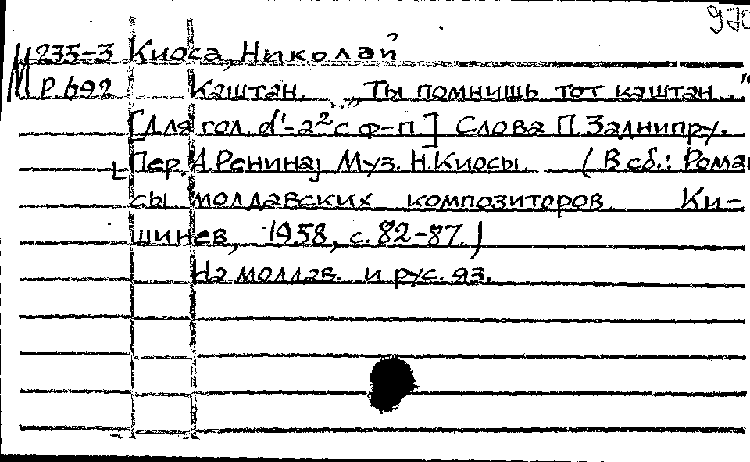 970
М 235-3 Киоса, Николай
Р 692 Каштан. „Ты помнишь тот каштан..."
[Для гол. d¹-a² с ф-п] Слова П. Заднипру.
[Пер. А. Ренина] Муз. Н. Киосы. (В сб.: Роман
сы молдавских композиторов. Ки-
шинев, 1958, с. 82-87.)
На молдав. и рус. яз.